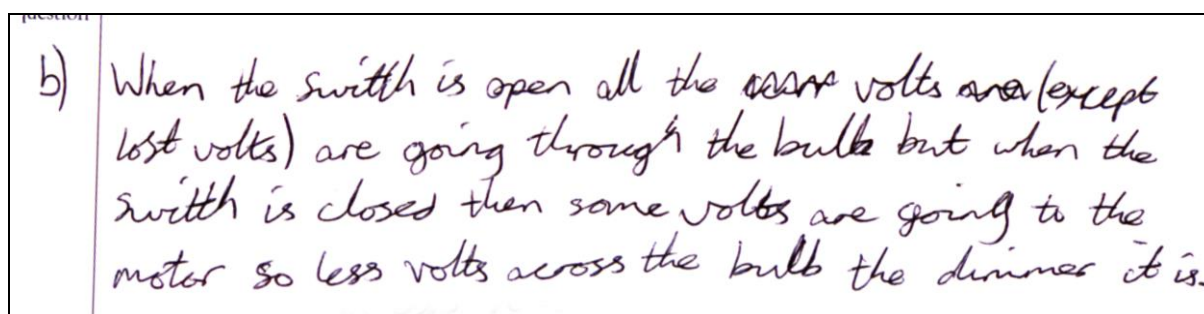 b) When the switch is open all the volts (except
lost volts) are going through the bulb but when the
switch is closed then some volts are going to the
motor so less volts across the bulb the dimmer it is.